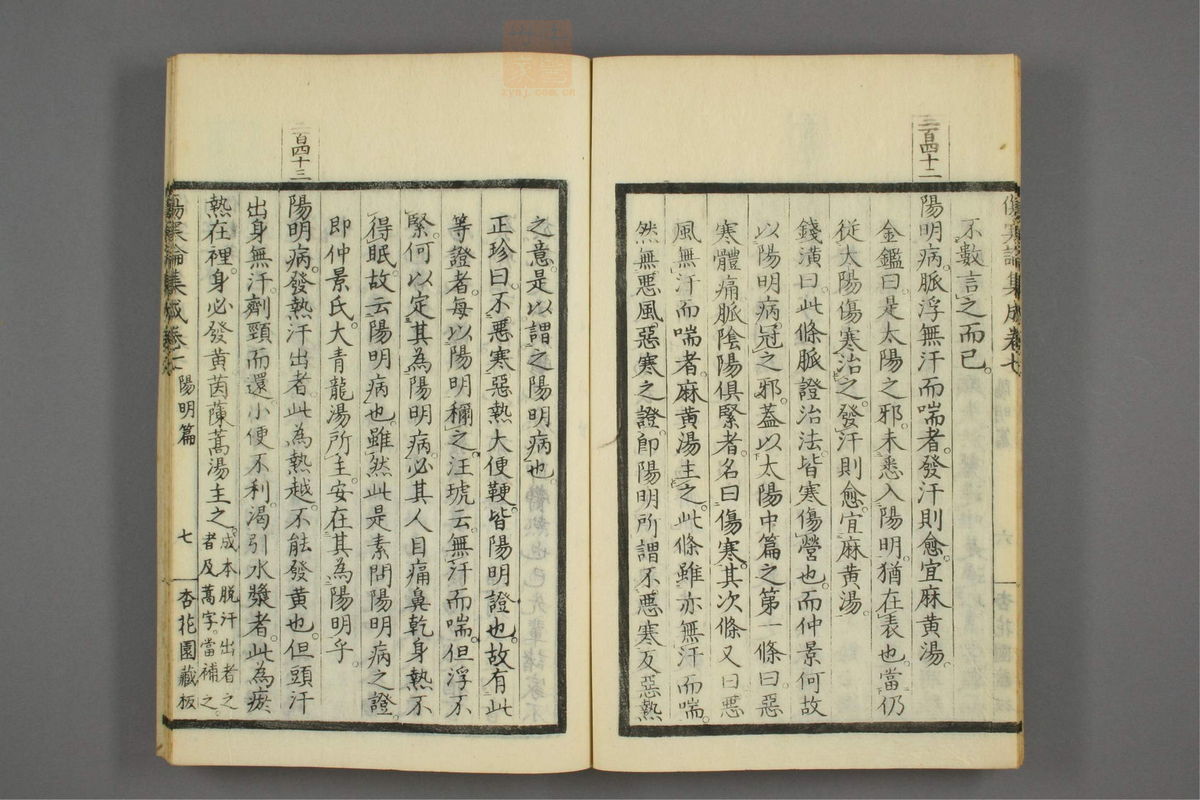 三百四十二
不數言之而已。
陽明病。脈浮無汗而喘者。發汗則愈。宜麻黄湯。
金鑑曰。是太陽之邪。未悉入陽明。猶在表也。當仍
從太陽傷寒治之。發汗則愈。宜麻黄湯。
錢潢曰。此條脈證治法。皆寒傷營也。而仲景何故
以陽明病冠之邪。蓋以太陽中篇之第一條曰。惡
寒體痛脈陰陽俱緊者。名曰傷寒。其次條又曰惡
風無汗而喘者。麻黄湯主之。此條雖亦無汗而喘。
然無惡風惡寒之證。卽陽明所謂不惡寒反惡熱
之意。是以謂之陽明病也。
正珍曰。不惡寒惡熱大便鞕。皆陽明證也。故有此
等證者。每以陽明稱之。汪琥云。無汗而喘。但浮不
緊。何以定其為陽明病。必其人目痛鼻乾身熱不
得眠。故云陽明病也。雖然此是素問陽明病之證。
卽仲景氏大青龍湯所主。安在其為陽明乎。
三百四十三
陽明病。發熱汗出者。此為熱越。不能發黄也。但頭汗
出身無汗。劑頸而還。小便不利。渴引水漿者。此為瘀
熱在裡。身必發黄。茵蔯蒿湯主之。成本脱汗出者之
者及蒿字。當補之。
傷寒論集成卷七 陽明篇 七 杏花園藏板